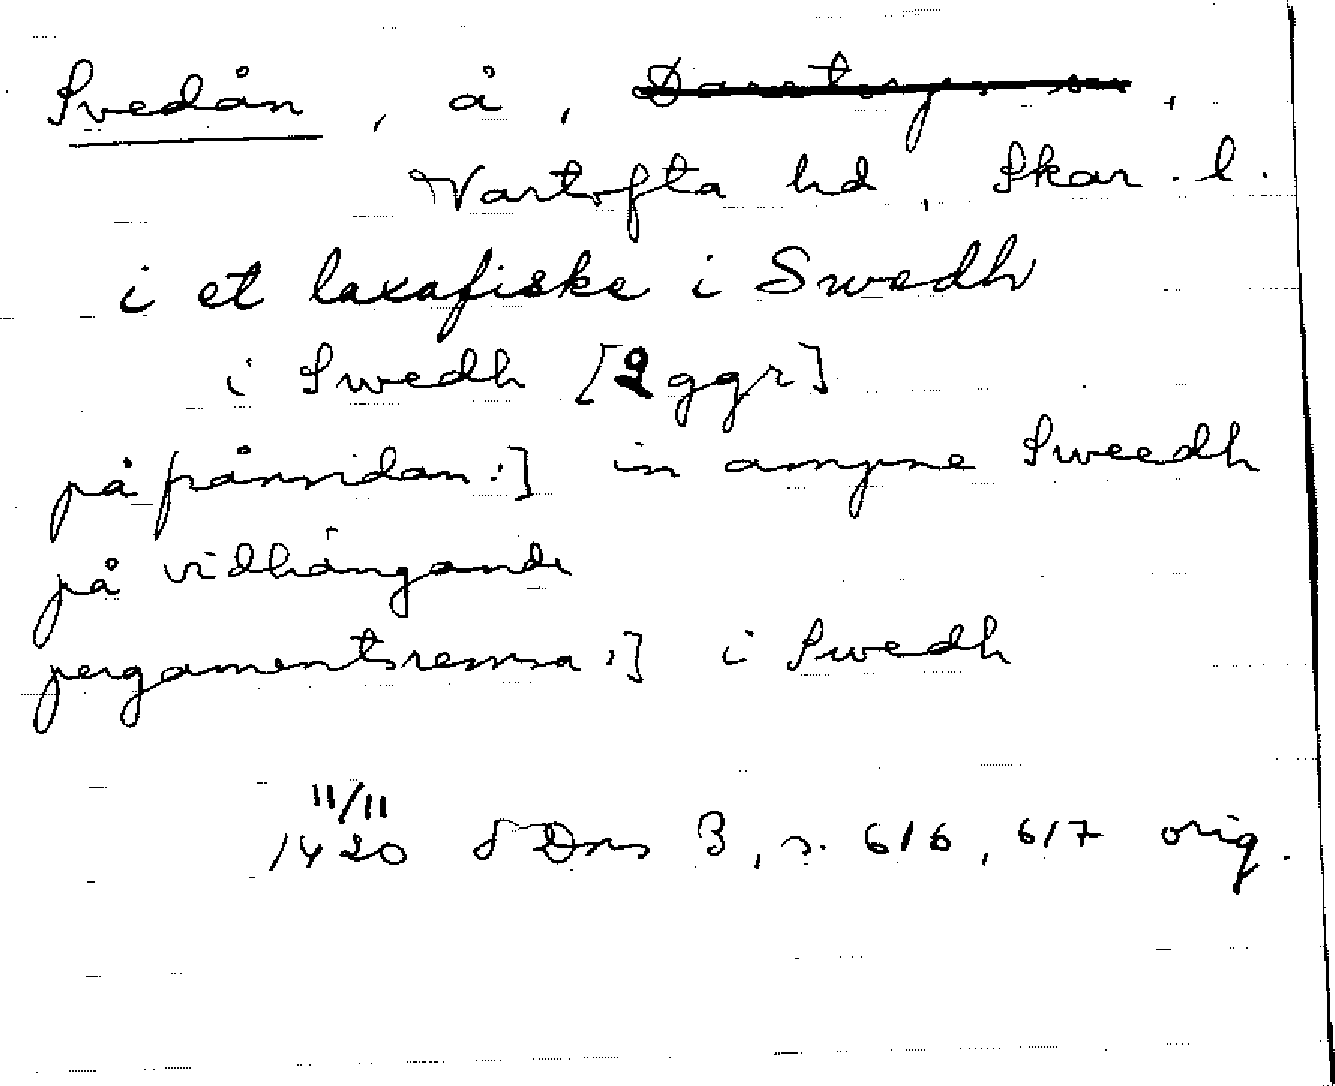 Svedån, å, ,
Vartofta hd, Skar. l.
i et laxafiske i Swedh
i Swedh [2 ggr]
på frånsidan:] in ampne Sweedh
på vidhängande
pergamentsremsa:] i Swedh
11/11
1420 SDns 3, s. 616, 617 orig.